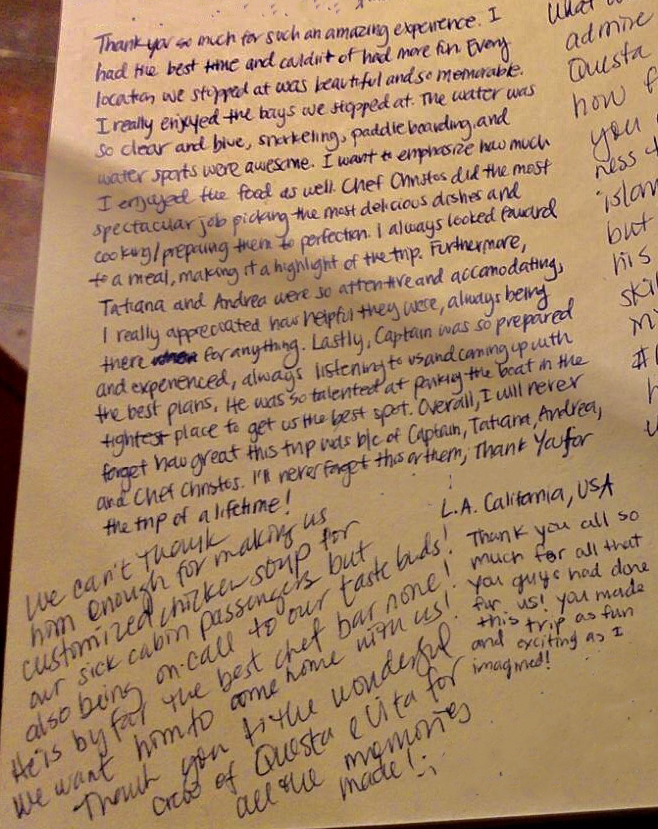 Thank you so much for such an amazing experience. I
had the best time and couldn't of had more fun. Every
location we stopped at was beautiful and so memorable.
I really enjoyed the bays we stopped at. The water was
so clear and blue, snorkeling, paddleboarding, and
water sports were awesome. I want to emphasize how much
I enjoyed the food as well. Chef Christos did the most
spectacular job picking the most delicious dishes and
cooking/preparing them to perfection. I always looked foward
to a meal, making it a highlight of the trip. Furthermore,
Tatiana and Andrea were so attentive and accomodating,
I really appreciated how helpful they were, always being
there for anything. Lastly, Captain was so prepared
and experienced, always listening to us and coming up with
the best plans. He was so talented at parking the boat in the
tightest place to get us the best spot. Overall, I will never
forget how great this trip was b/c of Captain, Tatiana, Andrea,
and Chef Christos. I'll never forget this or them, Thank You for
the trip of a lifetime!
L.A. California, USA
We can't thank
him enough for making us
customized chicken soup for
our sick cabin passengers but
also being on-call to our taste buds!
He is by far the best chef bar none!
We want him to come home with us!
Thank you to the wonderful
crew of Questa e Vita for
all the memories
made!
Thank you all so
much for all that
you guys had done
for us! you made
this trip as fun
and exciting as I
imagined!
What
admire
Questa
how
you
ness
but
his